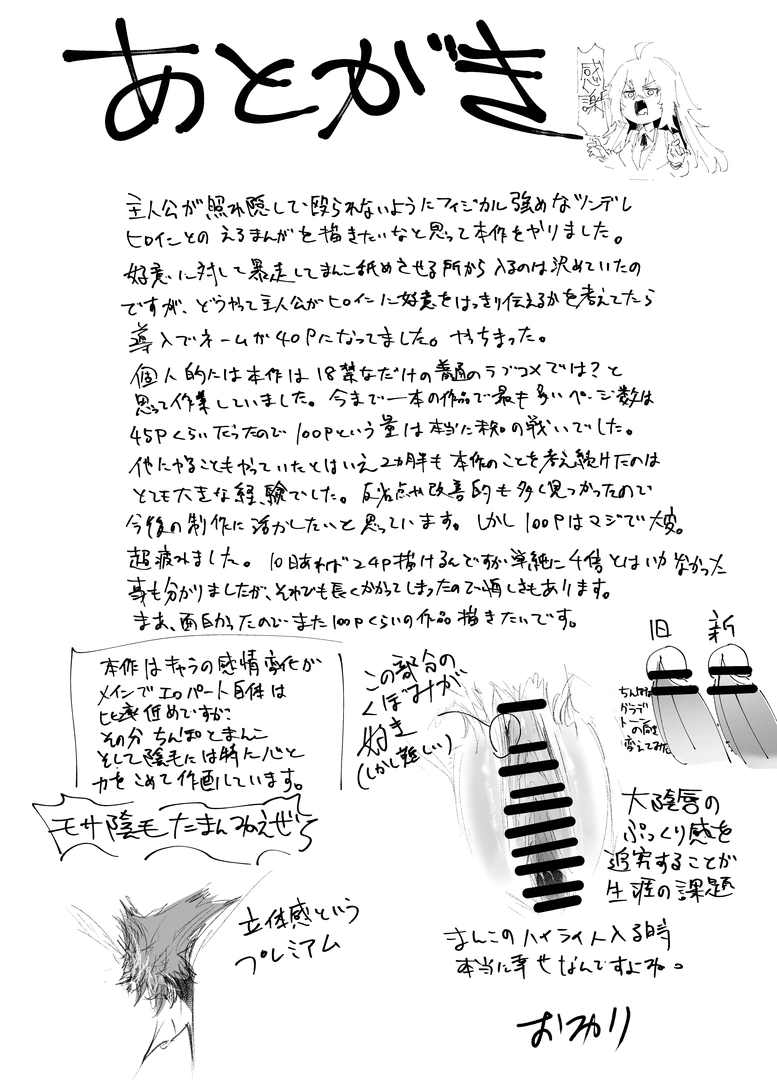 あとがき
感謝
主人公が照れ隠しで殴られないようにフィジカル強めなツンデレ
ヒロインとの えるまんがを描きたいなと思って本作をやりました。
好意に対して暴走してまんこ舐めさせる所から入るのは決めていたの
ですが、どうやって主人公がヒロインに好意をはっきり伝えるかを考えてたら
導入でネームが40Pになってました。やっちまった。
個人的には本作は18禁なだけの普通のラブコメでは?と
思って作業していました。今まで一本の作品で最も多いページ数は
45Pくらいだったので100Pという量は本当に未知の戦いでした。
他にやることもやっていたとはいえ2ヵ月半も本作のことを考え続けたのは
とても大きな経験でした。反省点や改善点も多く見つかったので
今後の制作に活かしたいと思っています。しかし100Pはマジで大変。
超疲れました。10日あれば24P描けるんですが単純に4倍とはいかなかった
事も分かりましたが、それでも長くかかってしまったので悔しさもあります。
まあ、面白かったのでまた100Pくらいの作品描きたいです。
本作はキャラの感情変化が
メインでエロパート自体は
比率低めですが
その分ちんぽとまんこ
そして陰毛には特に心と
力をこめて作画しています。
モサ陰毛たまんねえぜ
立体感という
プレミアム
この部分の
くぼみが
好き
(しかし難しい)
旧 新
ちんぽの
グラデ
トーン
の向き
変えてみた
大陰唇の
ぷっくり感を
追究することが
生涯の課題
まんこのハイライト入る時
本当に幸せなんですよね。
おわり